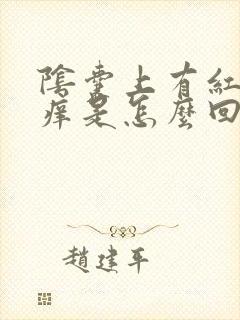 陰囊上有紅
痒是怎麼回
趙建平